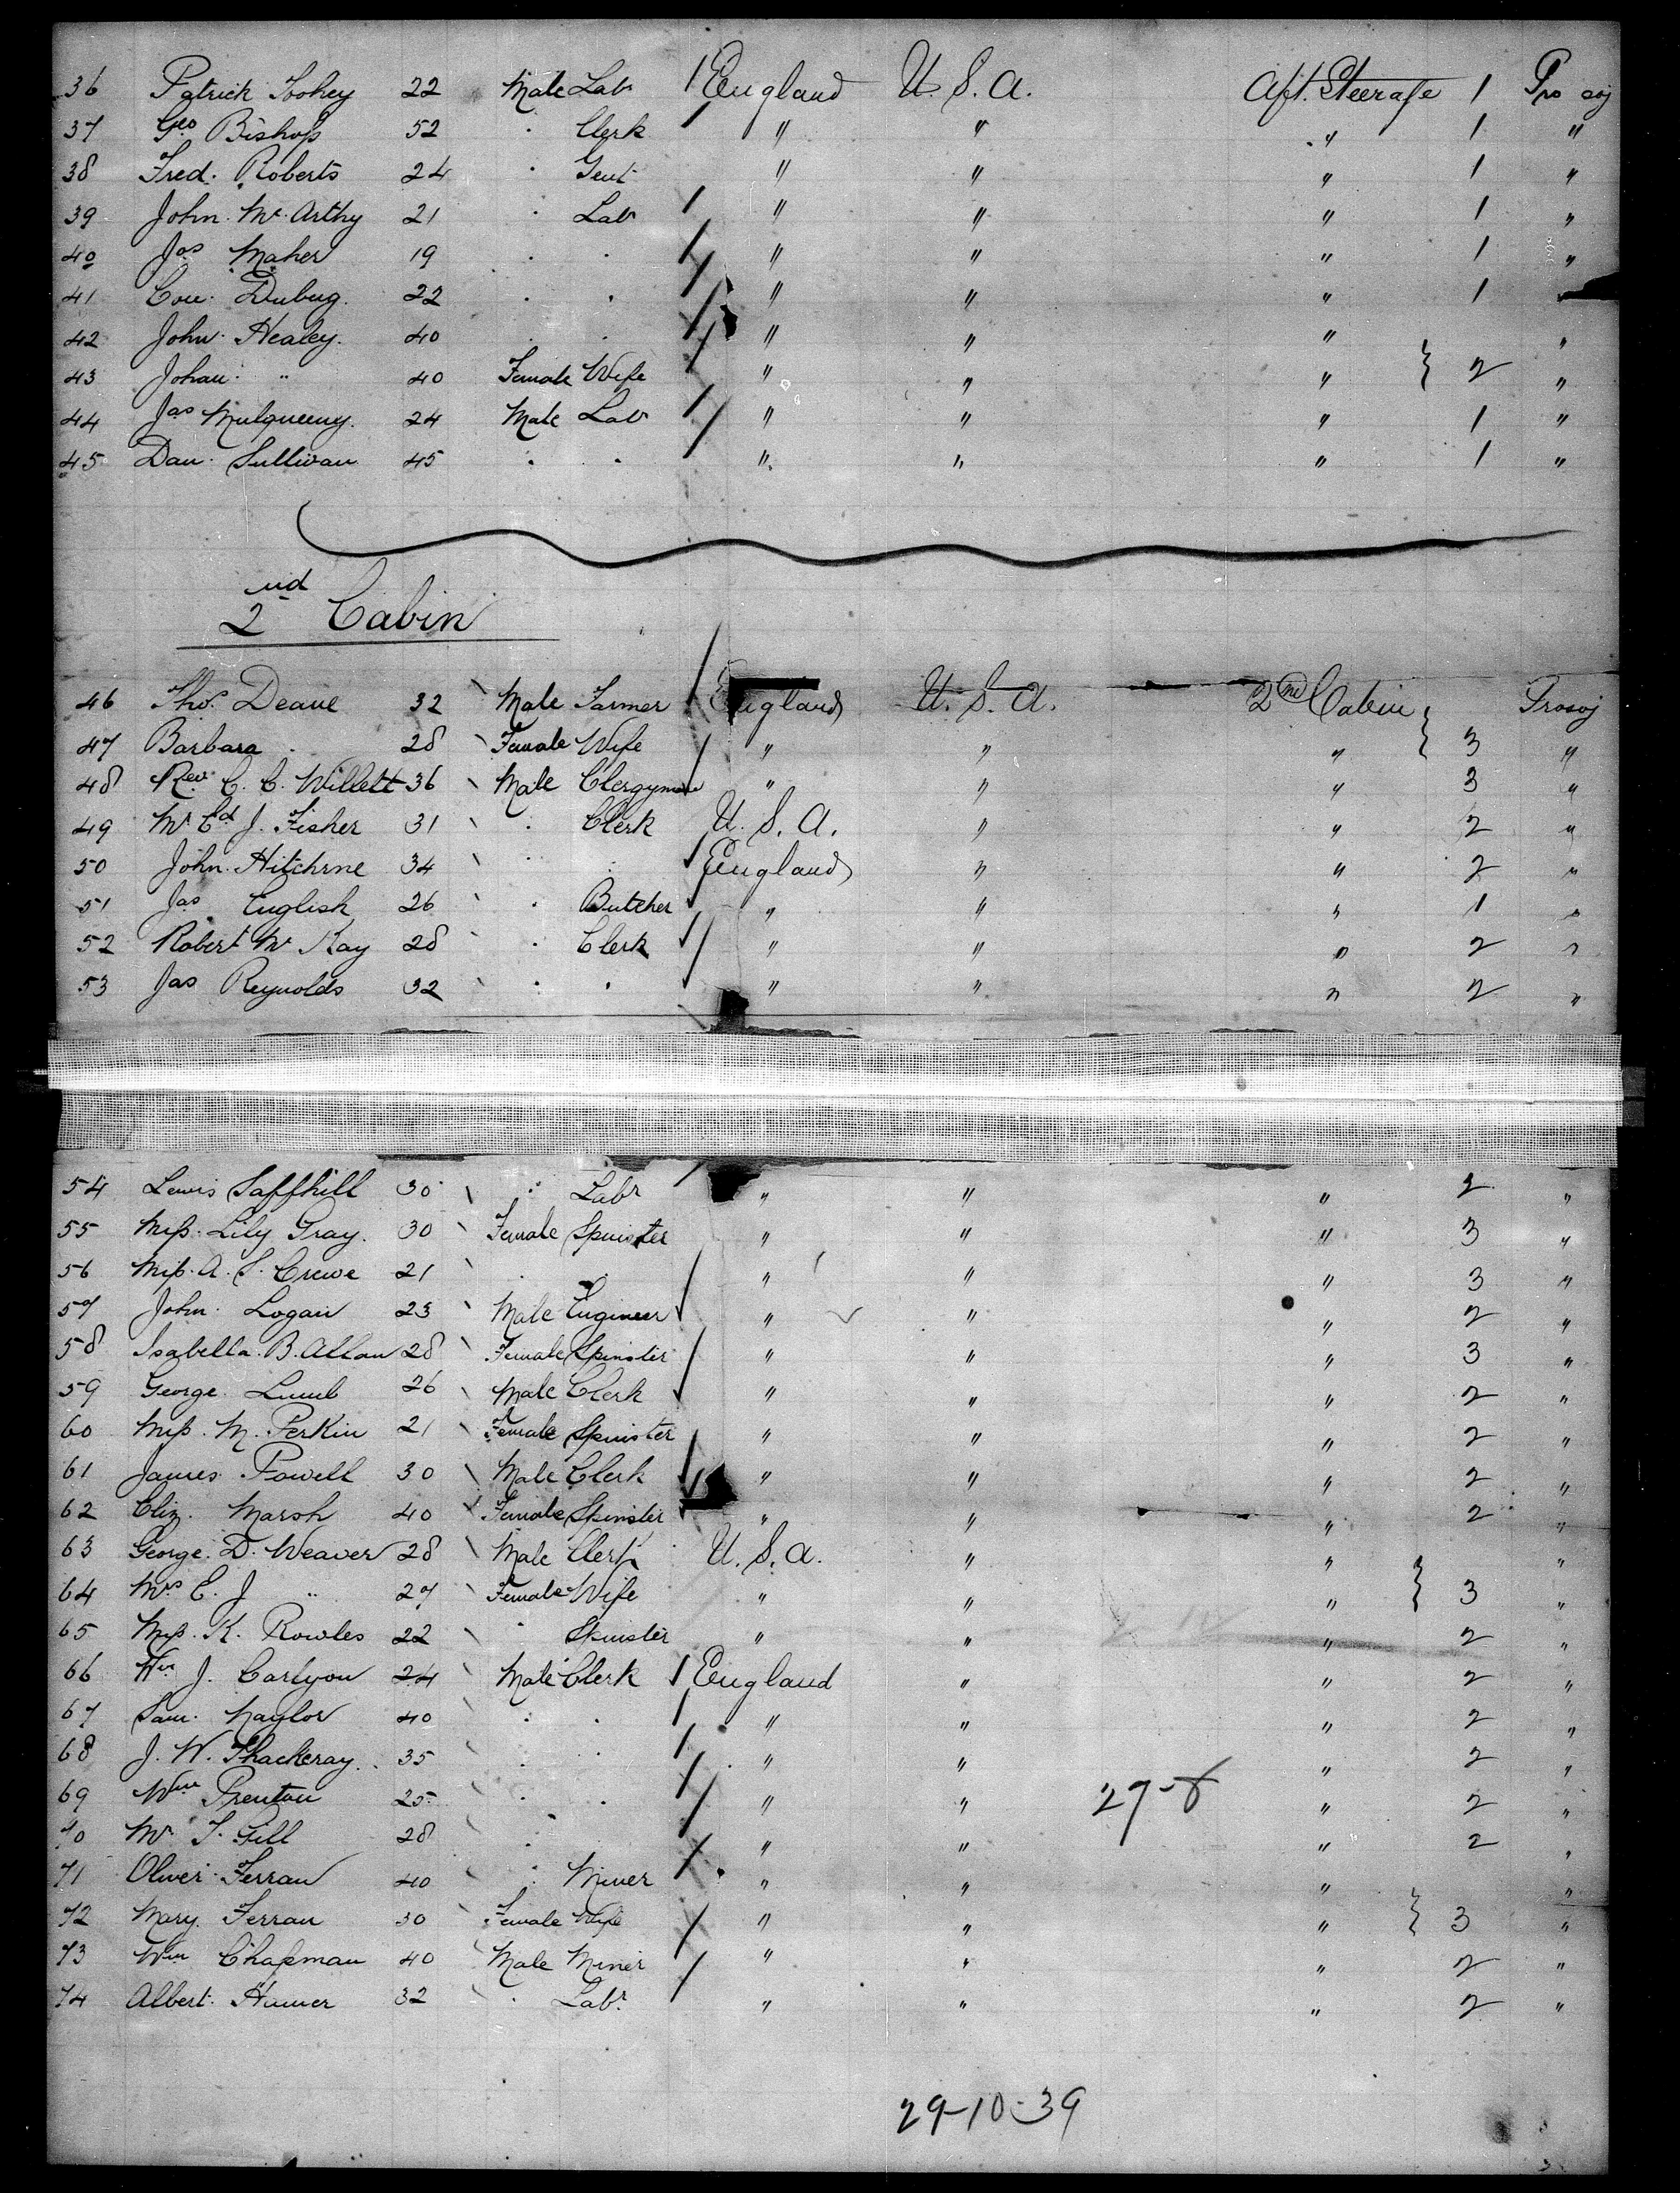 36 Patrick Tohey 22 Male Labr England U. S. A. Aft. Steerage 1 Pro soj
37 Geo Bishop 52 · Clerk " " " 1 "
38 Fred. Roberts 24 · Gent " " " 1 "
39 John. Mc. Arthy 21 · Labr " " " 1 "
40 Jas Maher 19 · · " " " 1 "
41 Con. 22 · · " " " 1 "
42 John. Healey. 40 · · " " " "
43 Johan. " 40 Female Wife " " " } 2 "
44 Jas Mulqueeny. 24 Male Labr " " " 1 "
45 Dan. Sullivan 45 · · " " " 1 "
2nd Cabin
46 Thos. Deane 32 Male Farmer England U. S. A. 2nd Cabin Prosoj
47 Barbara · 28 Female Wife " " " } 3 "
48 Rev. C. C. Willett 36 Male Clergyman " " " 3 "
49 Mr Ed J. Fisher 31 · Clerk U. S. A. " " 2 "
50 John. Hitchrne 34 · · England " " 2 "
51 Jas English 26 · Butcher " " " 1 "
52 Robert Mc Kay 28 · Clerk " " " 2 "
53 Jas Reynolds 32 · · " " " 2 "
54 Lewis Saffhill 30 · Labr " " " 2 "
55 Miss. Lily Gray. 30 Female Spinster " " " 3 "
56 Miss. A. S. Crewe 21 · · " " " 3 "
57 John. Logan 23 Male Engineer " " " 2 "
58 Isabella. B. Allan 28 Female Spinster " " " 3 "
59 George. Lumb 26 Male Clerk " " " 2 "
60 Miss. M. Perkin 21 Female Spinster " " " 2 "
61 James Powell 30 Male Clerk " " " 2 "
62 Eliz. Marsh 40 Female Spinster " " " 2 "
63 George. D. Weaver 28 Male Clerk U. S. A. " " "
64 Mrs E. J " 27 Female Wife " " " } 3 "
65 Miss. K. Rowles 22 · Spinster " " " 2 "
66 Wm J. Carlyon 24 Male Clerk England " " 2 "
67 Sam. Naylor 40 · · " " " 2 "
68 J. W. Thackeray. 35 · · " " " 2 "
69 Wm Prenton 25 · · " " 27-8 " 2 "
70 Mr. T. Gill 28 · · " " " 2 "
71 Oliver Ferran 40 · Miner " " " "
72 Mary. Ferran 30 Female Wife " " " } 3 "
73 Wm Chapman 40 Male Miner " " " 2 "
74 Albert. Hamer 32 · Labr. " " " 2 "
29-10-39